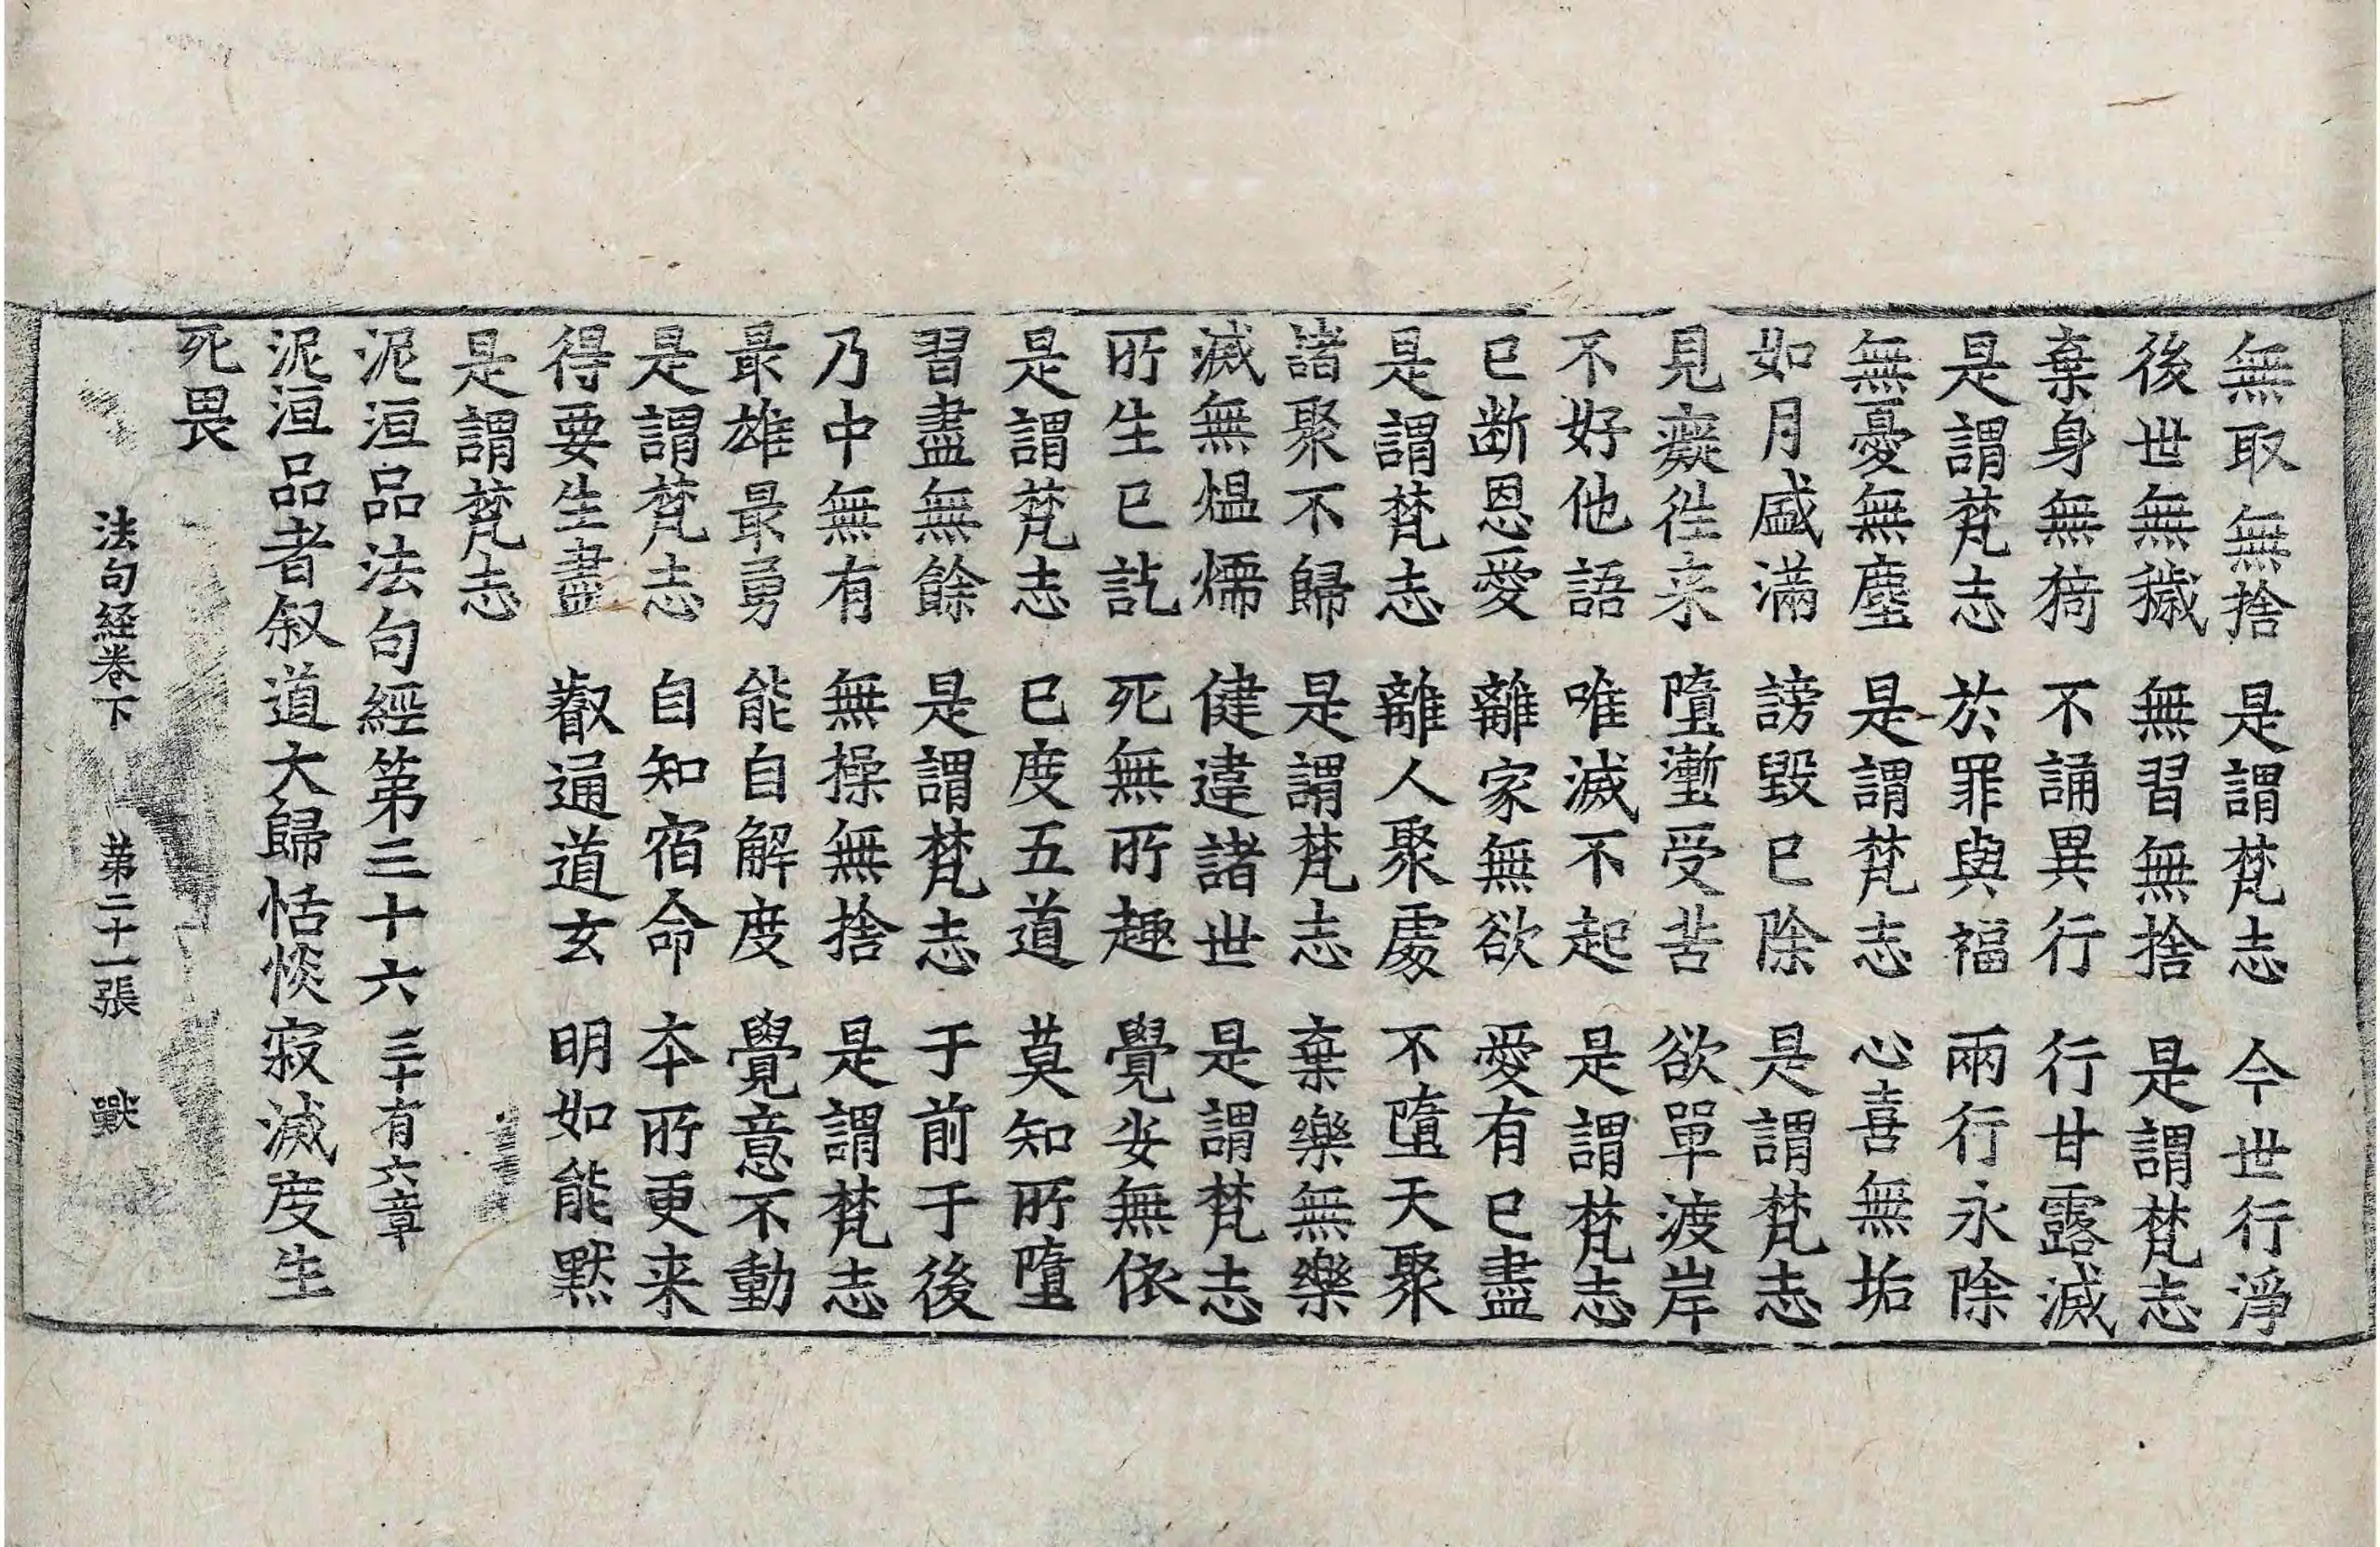 無取無捨　是謂梵志　今世行淨
後世無穢　無習無捨　是謂梵志
棄身無猗　不誦異行　行甘露滅
是謂梵志　於罪與福　兩行永除
無憂無塵　是謂梵志　心喜無垢
如月盛滿　謗毀已除　是謂梵志
見癡往来　墮壍受苦　欲單渡岸
不好他語　唯滅不起　是謂梵志
已断恩愛　離家無欲　愛有已盡
是謂梵志　離人聚處　不墮天聚
諸聚不歸　是謂梵志　棄樂無樂
滅無熅燸　健違諸世　是謂梵志
所生已訖　死無所趣　覺安無依
是謂梵志　已度五道　莫知所墮
習盡無餘　是謂梵志　于前于後
乃中無有　無操無捨　是謂梵志
最雄最勇　能自解度　覺意不動
是謂梵志　自知宿命　本所更来
得要生盡　叡通道玄　明如能黙
是謂梵志
泥洹品法句經第三十六　三十有六章
泥洹品者叙道大歸恬惔寂滅度生
死畏
法句経卷下　第二十一張　戰